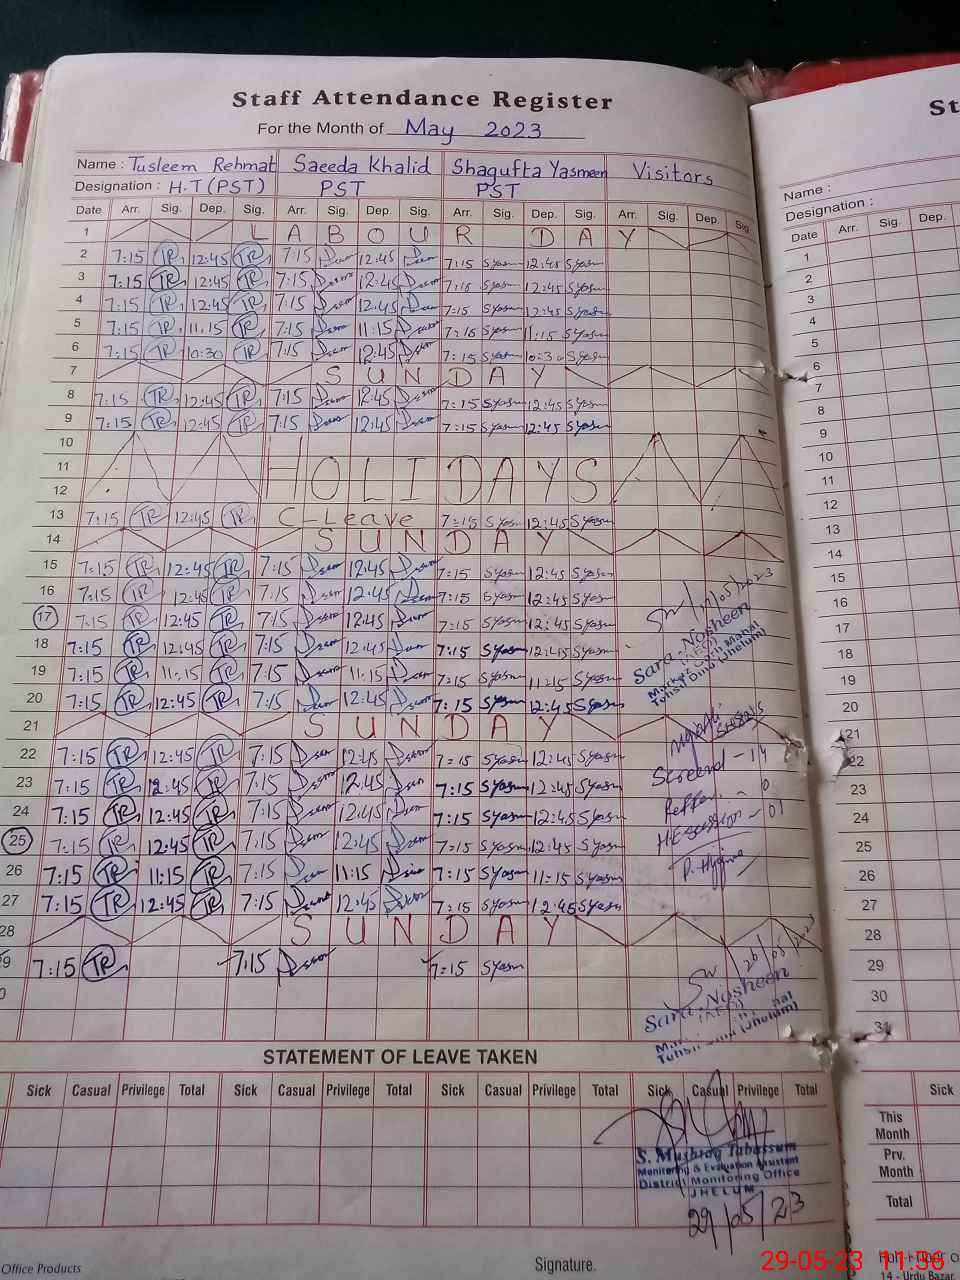 Staff Attendance Register
For the Month of May 2023
Name : Tusleem Rehmat Saeeda Khalid Shagufta Yasmeen Visitors
Designation : H.T (PST) PST PST
Date Arr. Sig. Dep. Sig. Arr. Sig. Dep. Sig. Arr. Sig. Dep. Sig. Arr. Sig. Dep. Sig.
1 LABOUR DAY
2 7:15 TR 12:45 TR 7:15 12:45 7:15 Syasm 12:45 Syasm
3 7:15 TR 12:45 TR 7:15 12:45 7:15 Syasm 12:45 Syasm
4 7:15 TR 12:45 TR 7:15 12:45 7:15 Syasm 12:45 Syasm
5 7:15 TR 11:15 TR 7:15 11:15 7:15 Syasm 11:15 Syasm
6 7:15 TR 10:30 TR 7:15 12:45 7:15 Syasm 10:30 Syasm
7 SUNDAY
8 7:15 TR 12:45 TR 7:15 12:45 7:15 Syasm 12:45 Syasm
9 7:15 TR 12:45 TR 7:15 12:45 7:15 Syasm 12:45 Syasm
10
11 HOLIDAYS
12
13 7:15 TR 12:45 TR C-Leave 7:15 Syasm 12:45 Syasm
14 SUNDAY
15 7:15 TR 12:45 TR 7:15 12:45 7:15 Syasm 12:45 Syasm
16 7:15 TR 12:45 TR 7:15 12:45 7:15 Syasm 12:45 Syasm
17 7:15 TR 12:45 TR 7:15 12:45 7:15 Syasm 12:45 Syasm
18 7:15 TR 12:45 TR 7:15 12:45 7:15 Syasm 12:45 Syasm
19 7:15 TR 11:15 TR 7:15 11:15 7:15 Syasm 11:15 Syasm
20 7:15 TR 12:45 TR 7:15 12:45 7:15 Syasm 12:45 Syasm
21 SUNDAY
22 7:15 TR 12:45 TR 7:15 12:45 7:15 Syasm 12:45 Syasm
23 7:15 TR 12:45 TR 7:15 12:45 7:15 Syasm 12:45 Syasm
24 7:15 TR 12:45 TR 7:15 12:45 7:15 Syasm 12:45 Syasm
25 7:15 TR 12:45 TR 7:15 12:45 7:15 Syasm 12:45 Syasm
26 7:15 TR 11:15 TR 7:15 11:15 7:15 Syasm 11:15 Syasm
27 7:15 TR 12:45 TR 7:15 12:45 7:15 Syasm 12:45 Syasm
28 SUNDAY
29 7:15 TR 7:15 7:15 Syasm
/05/2023
Sara Nosheen
(AEO)
Tehsil Dina (Jhelum)
Screend - 14
- 0
- 01
P. Hygine
26/05/
Sara Nosheen
(AEO)
Tehsil Dina (Jhelum)
STATEMENT OF LEAVE TAKEN
Sick Casual Privilege Total Sick Casual Privilege Total Sick Casual Privilege Total Sick Casual Privilege Total
S. Mushtaq Tabassum
Monitoring & Evaluation Assistant
District Monitoring Office
JHELUM
29/05/23
Office Products
Signature.
St
Name :
Designation :
Date Arr. Sig. Dep.
1
2
3
4
5
6
7
8
9
10
11
12
13
14
15
16
17
18
19
20
21
22
23
24
25
26
27
28
29
30
31
Sick
This Month
Prv. Month
Total
14 - Urdu Bazar
29-05-23 11:36